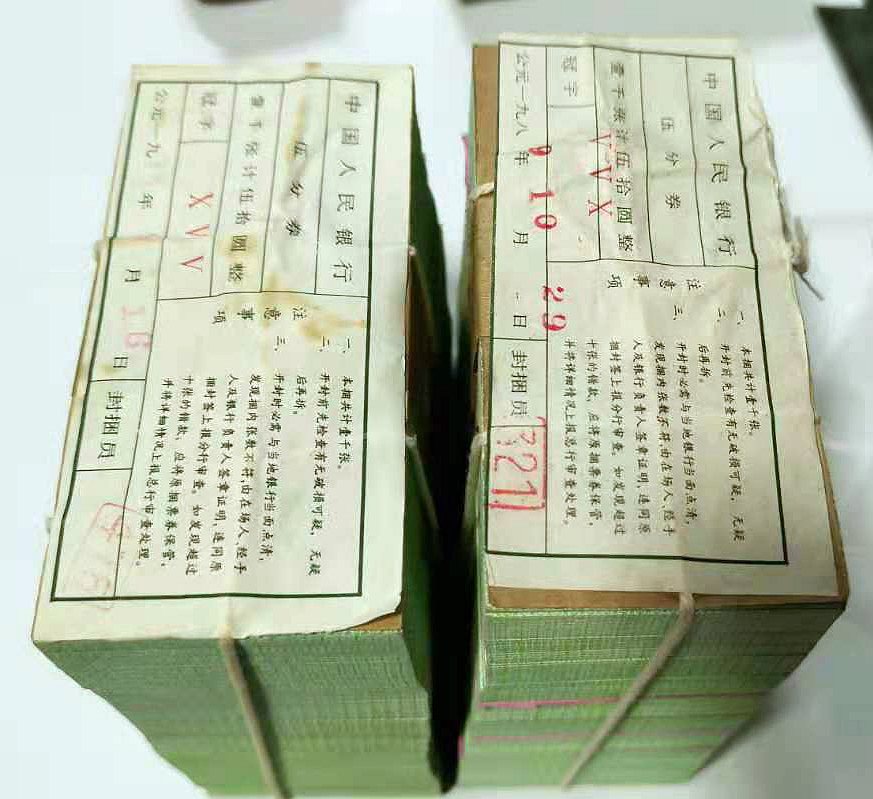 中国人民银行
伍分券
壹千张计伍拾圆整
冠字 XVV
公元一九 年 月16日
封捆员
注意事项
一、本捆共计壹千张。
二、开封前先检查有无破损可疑，无疑
后再拆。
三、开封时必需与当地银行当面点清，
发现捆内张数不符，由在场人、经手
人及银行负责人签章证明，连同原
捆封签上报分行审查。如发现超过
十张的错款，应将原捆票券保管，
并将详细情况上报总行审查处理。
中国人民银行
伍分券
壹千张计伍拾圆整
冠字 VVX
公元一九八9年10月29日
封捆员
注意事项
一、本捆共计壹千张。
二、开封前先检查有无破损可疑，无疑
后再拆。
三、开封时必需与当地银行当面点清，
发现捆内张数不符，由在场人、经手
人及银行负责人签章证明，连同原
捆封签上报分行审查。如发现超过
十张的错款，应将原捆票券保管，
并将详细情况上报总行审查处理。